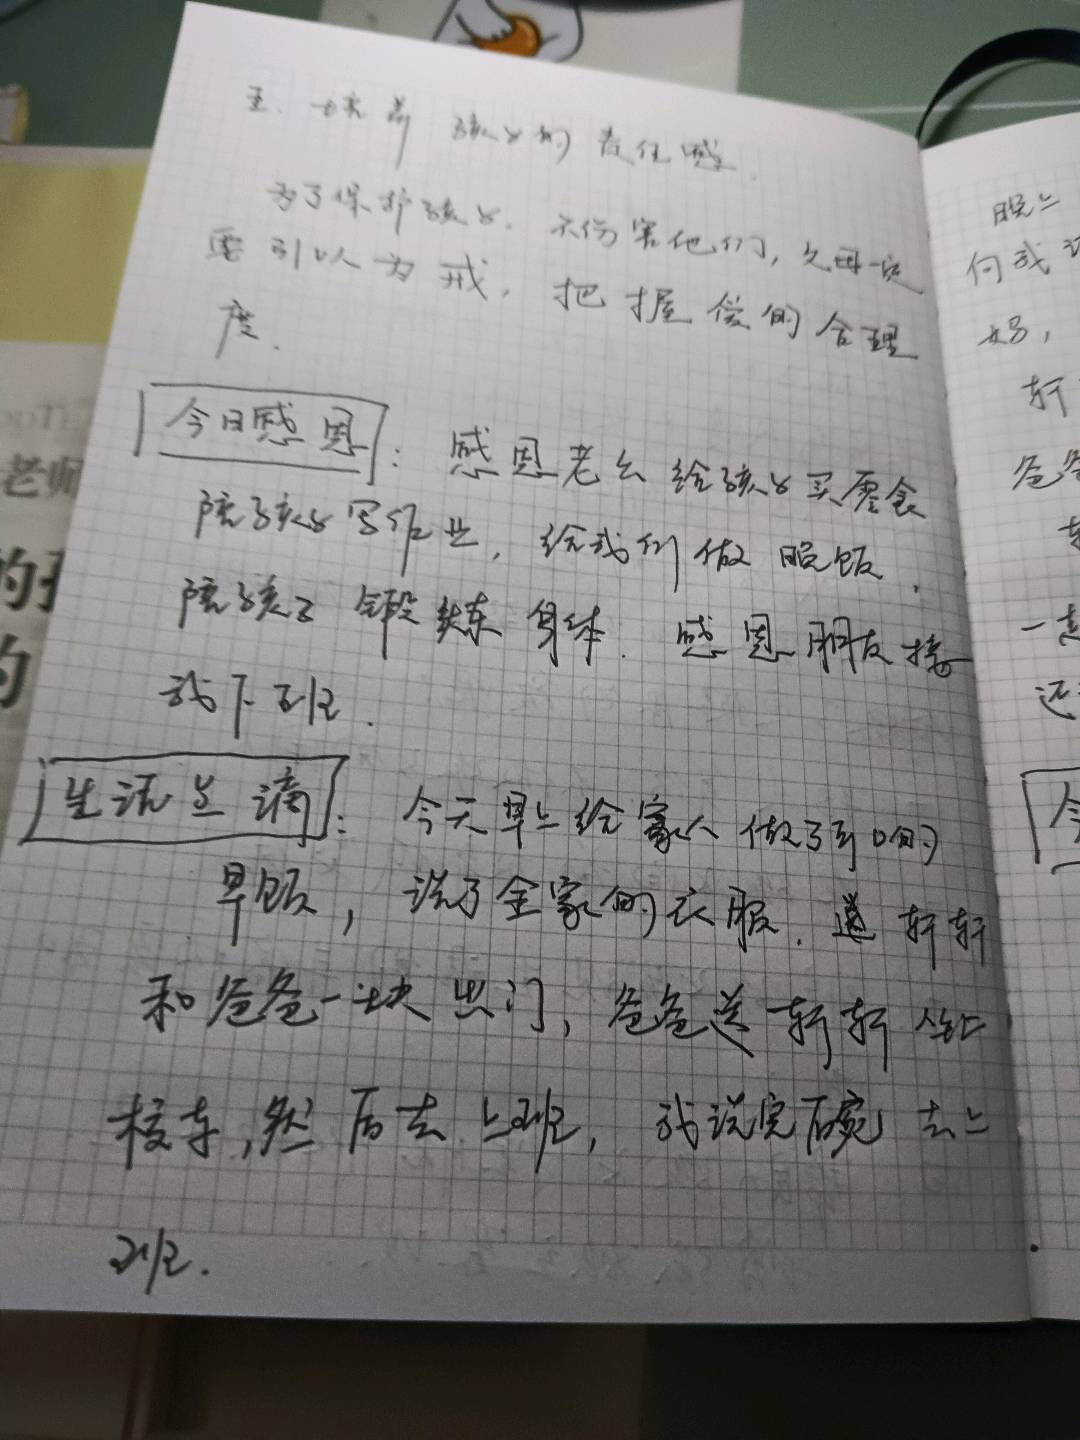 五. 培养孩子的责任感.
为了保护孩子. 不伤害他们, 父母一定
要引以为戒, 把握爱的合理
度.
今日感恩: 感恩老公给孩子买零食
陪孩子写作业, 给我们做晚饭,
陪孩子锻炼身体. 感恩朋友接
我下班.
生活点滴: 今天早上给家人做了可口的
早饭, 洗了全家的衣服. 送轩轩
和爸爸一块出门, 爸爸送轩轩坐上
校车, 然后去上班, 我洗完碗去上
班.
晚上
何成
好,
轩
爸爸
一起
还
今
老师
的
的